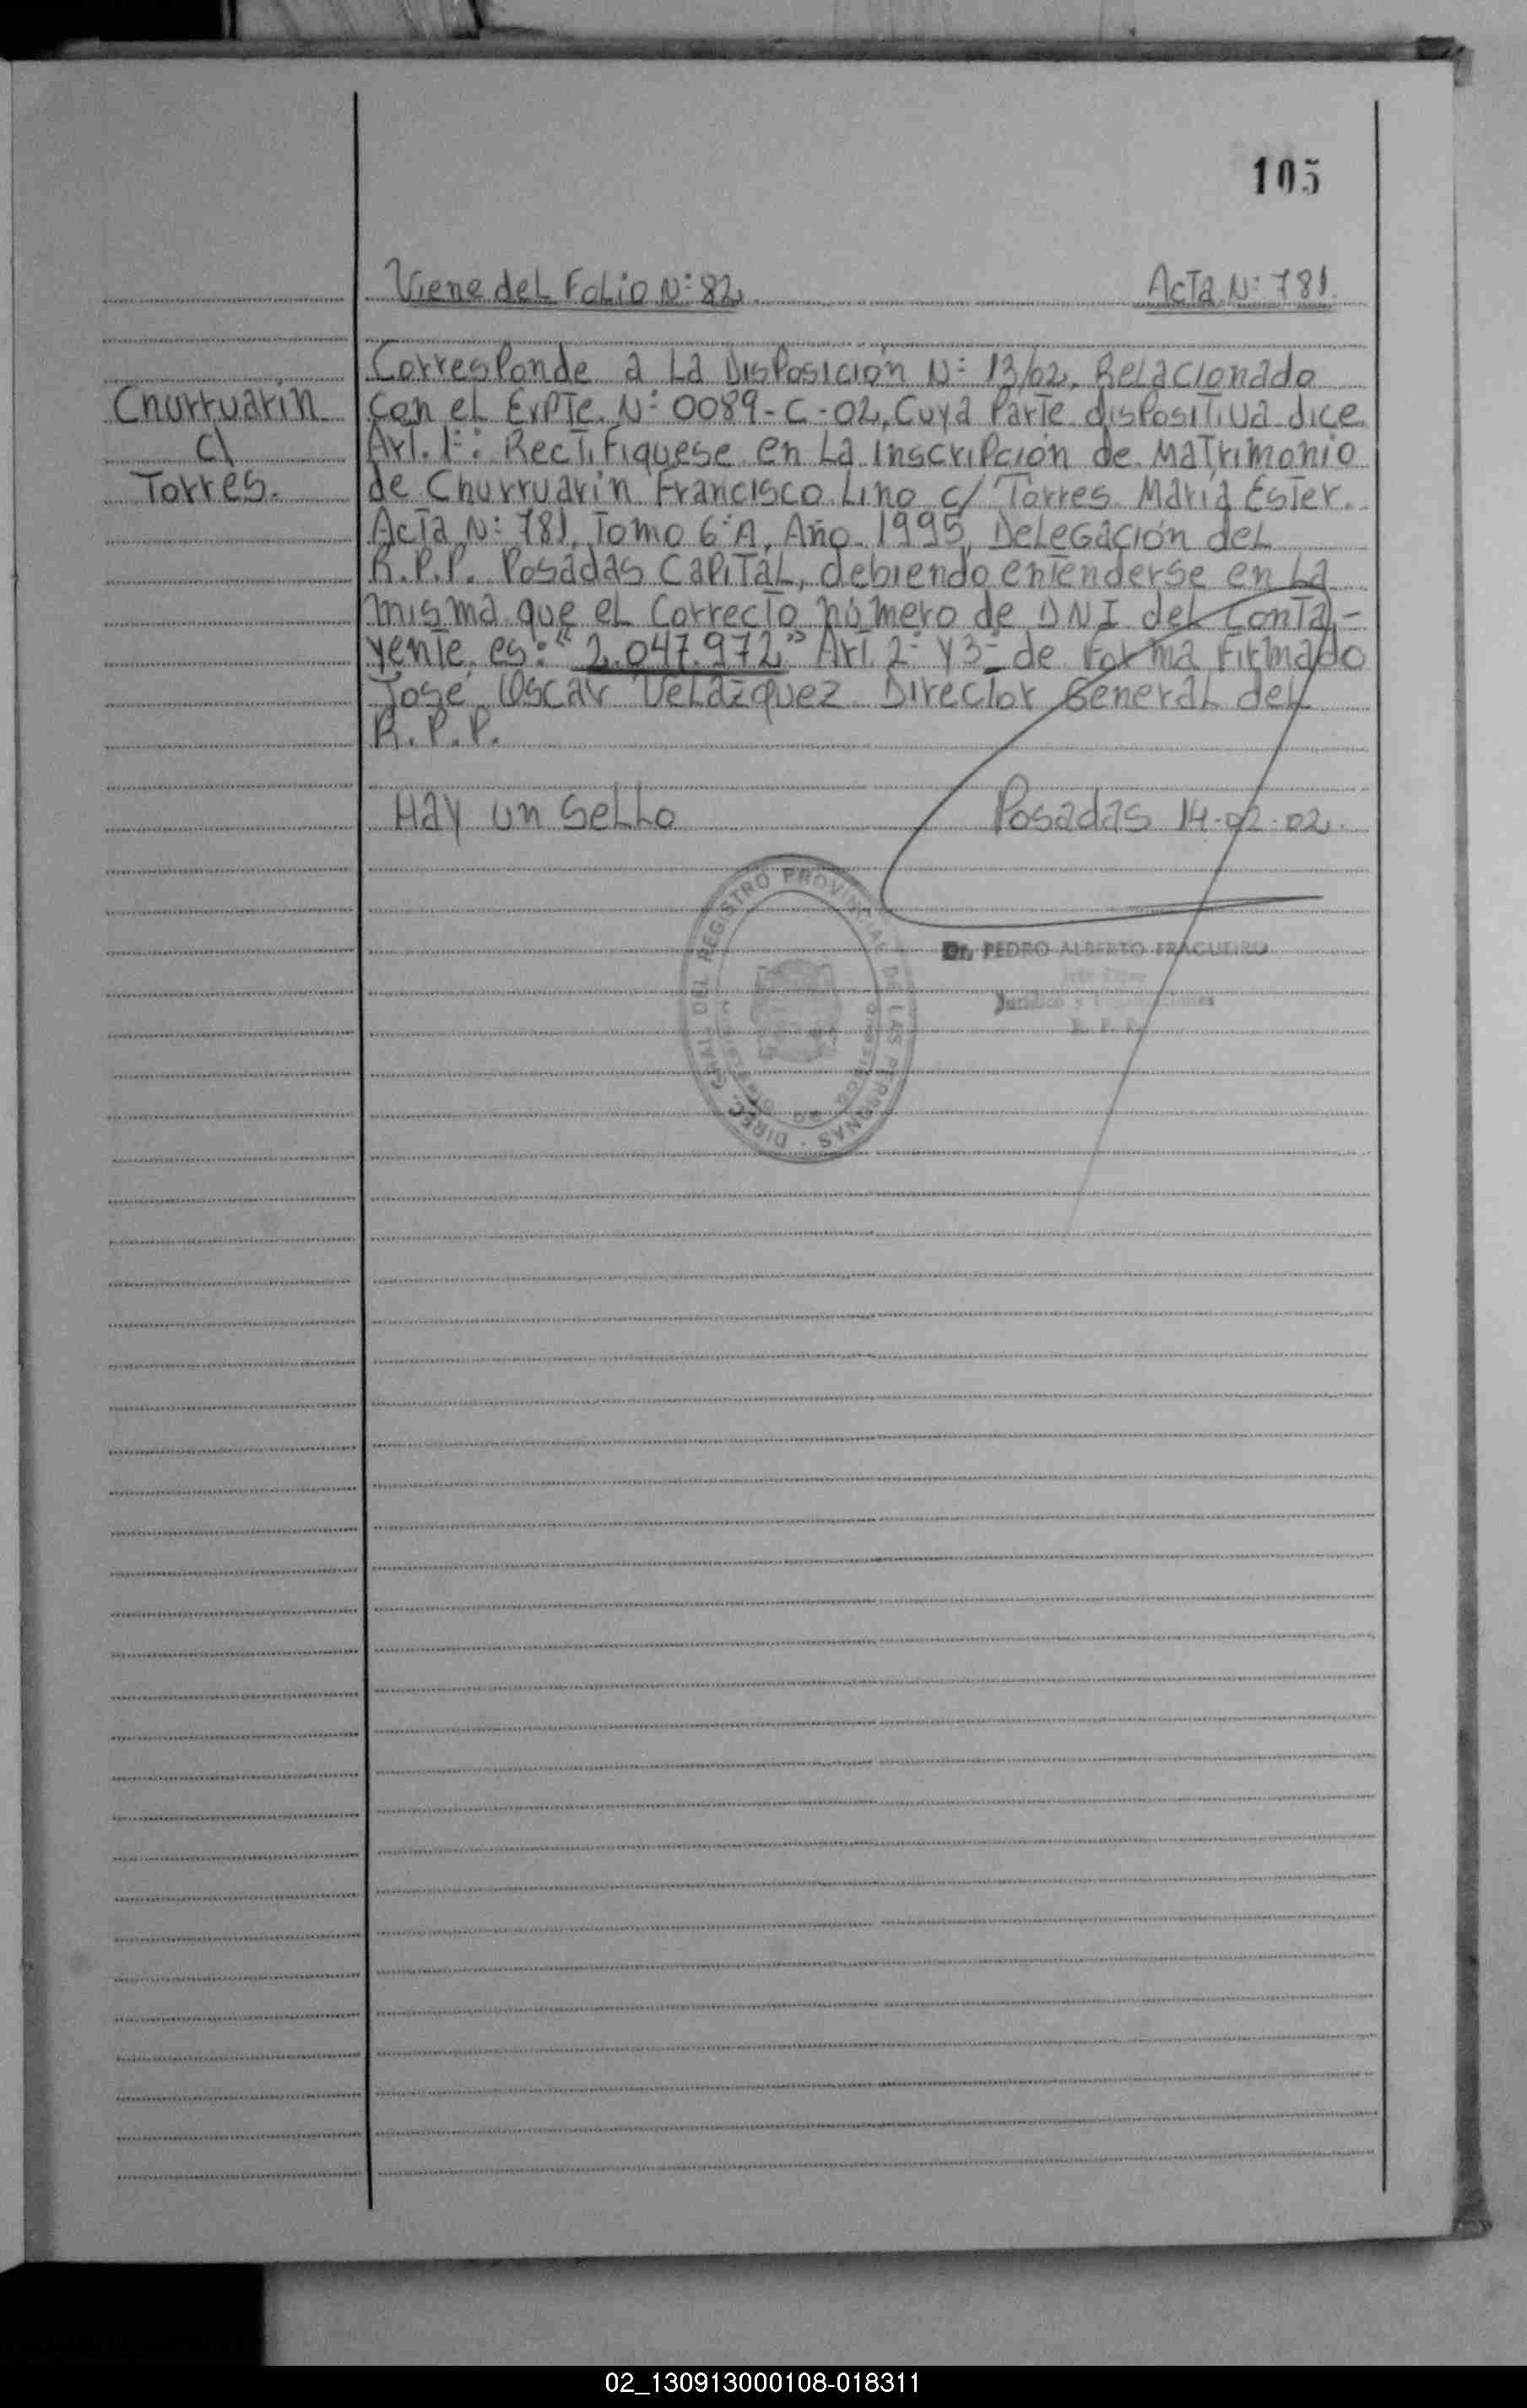 105
Viene del Folio N: 82. Acta N: 781.
Corresponde a La Disposición N: 13/02, Relacionado
Churruarin
c/
Torres.
con el Expte. N: 0089-C-02, Cuya Parte dispositiva dice
Art. 1º: Rectifiquese en La Inscripción de Matrimonio
de Churruarin Francisco Lino c/ Torres María Ester.
Acta N: 781, Tomo 6ºA, Año 1995, Delegación del
R.P.P. Posadas Capital, debiendo entenderse en La
misma que el correcto número de DNI del Conta-
yente es: "2.047.972" Art. 2º y 3º de Forma Firmado
José Oscar Velázquez Director General del
R.P.P.
Hay un Sello Posadas 14-02-02.
DIREC. GRAL. DEL REGISTRO PROVINCIAL DE LAS PERSONAS
Dr. PEDRO ALBERTO FRAGUEIRO
R. P. P.
02_130913000108-018311